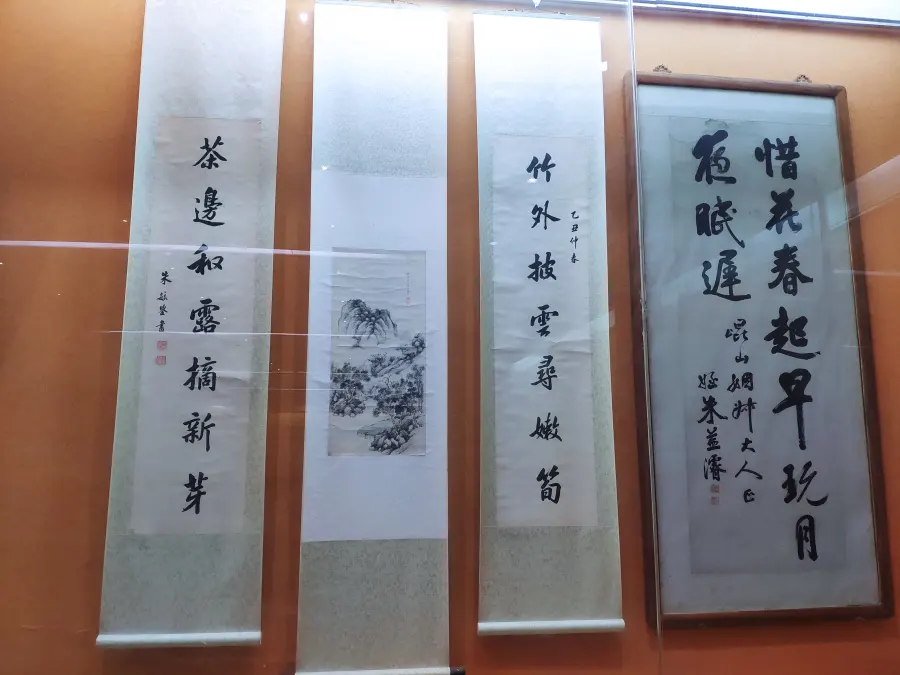 惜花春起早玩月
夜眠遲
崐山姻姊大人正
姪朱益濬
乙丑仲春
竹外披雲尋嫩筍
茶邊和露摘新芽
朱益鋆書